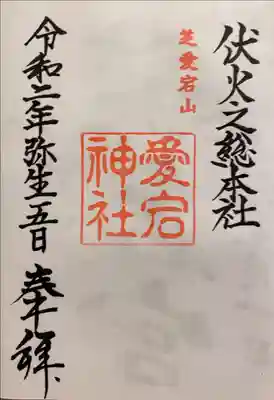 伏火之総本社
芝愛宕山
愛宕
神社
令和二年弥生一五日 奉拝